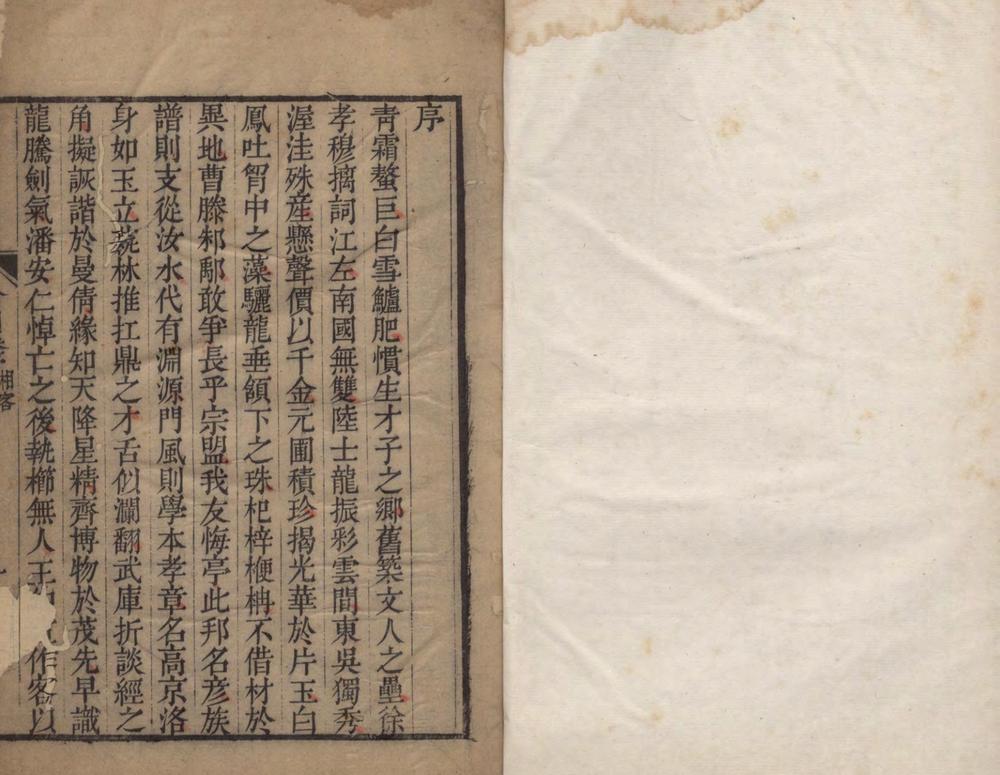 序
青霜螯巨白雪鱸肥慣生才子之鄉舊築文人之壘徐
孝穆摛詞江左南國無雙陸士龍振彩雲間東吳獨秀
渥洼殊産懸聲價以千金元圃積珍揭光華於片玉白
鳳吐胷中之藻驪龍垂頷下之珠杞梓楩柟不借材於
異地曹滕邾郳敢爭長乎宗盟我友悔亭此邦名彥族
譜則支從汝水代有淵源門風則學本孝章名高京洛
身如玉立藝林推扛鼎之才舌似瀾翻武庫折談經之
角擬詼諧於曼倩緣知天降星精齊博物於茂先早識
龍騰劍氣潘安仁悼亡之後執櫛無人王作客以
湘客